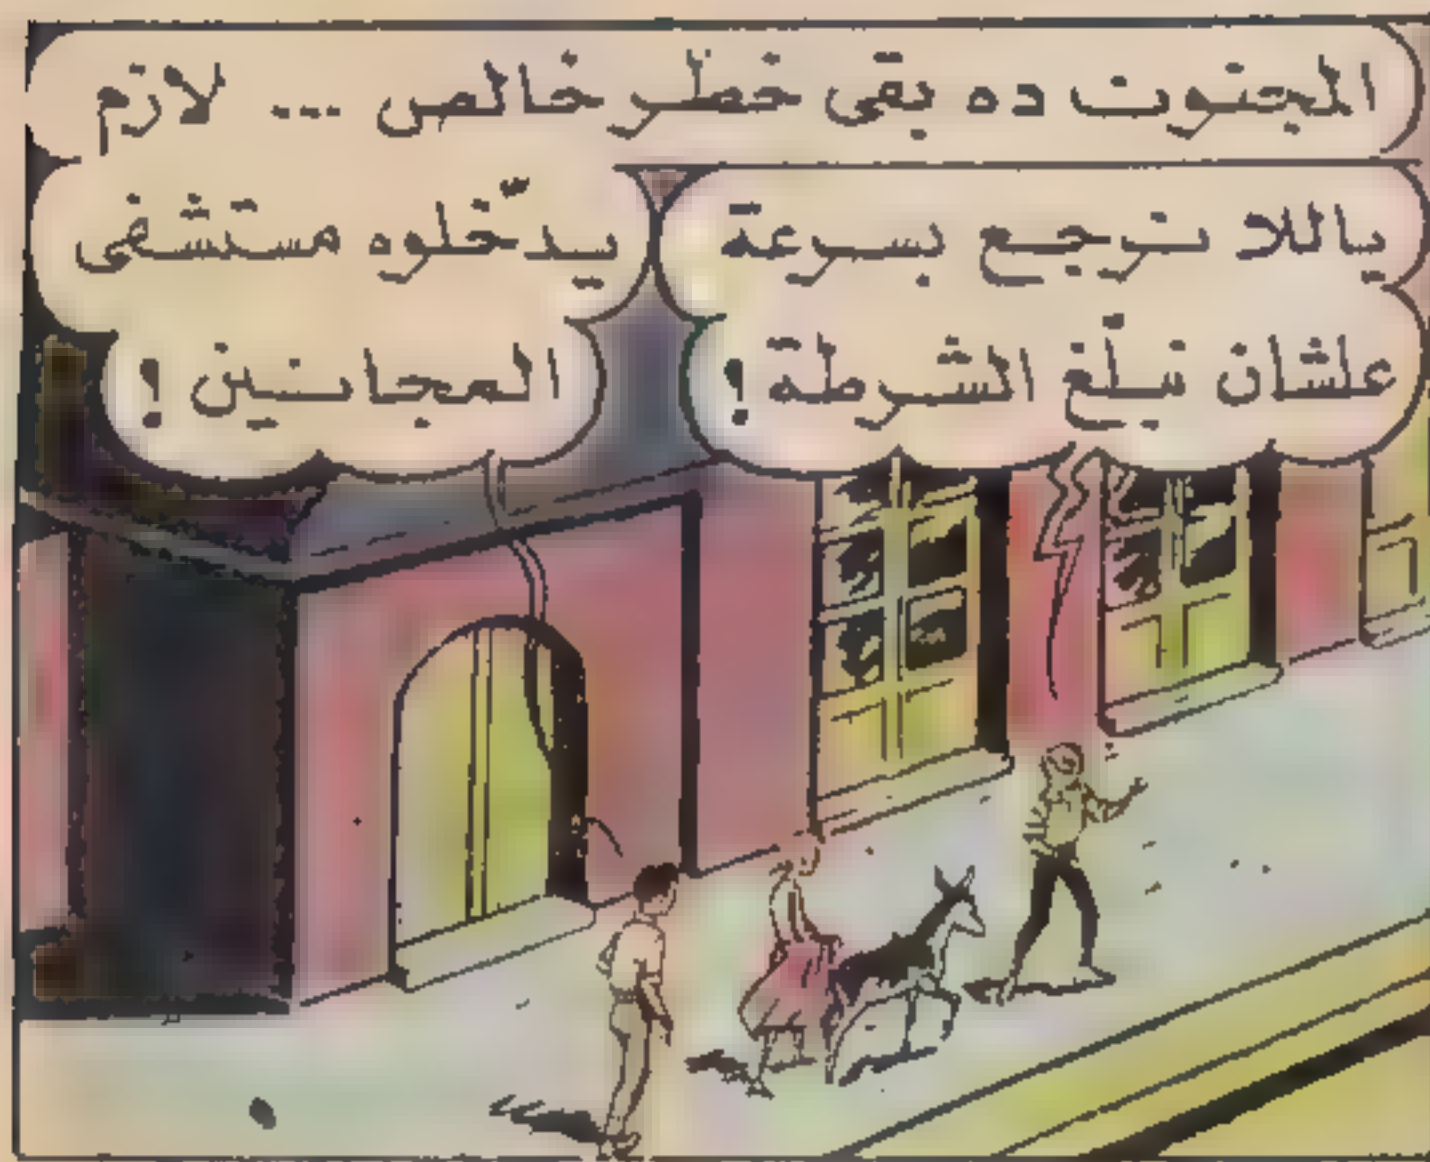 المجنون ده بقى خطر خالص ... لازم
يدّخلوه مستشفى
المجانين !
ياللا نرجع بسرعة
علشان نبلّغ الشرطة !